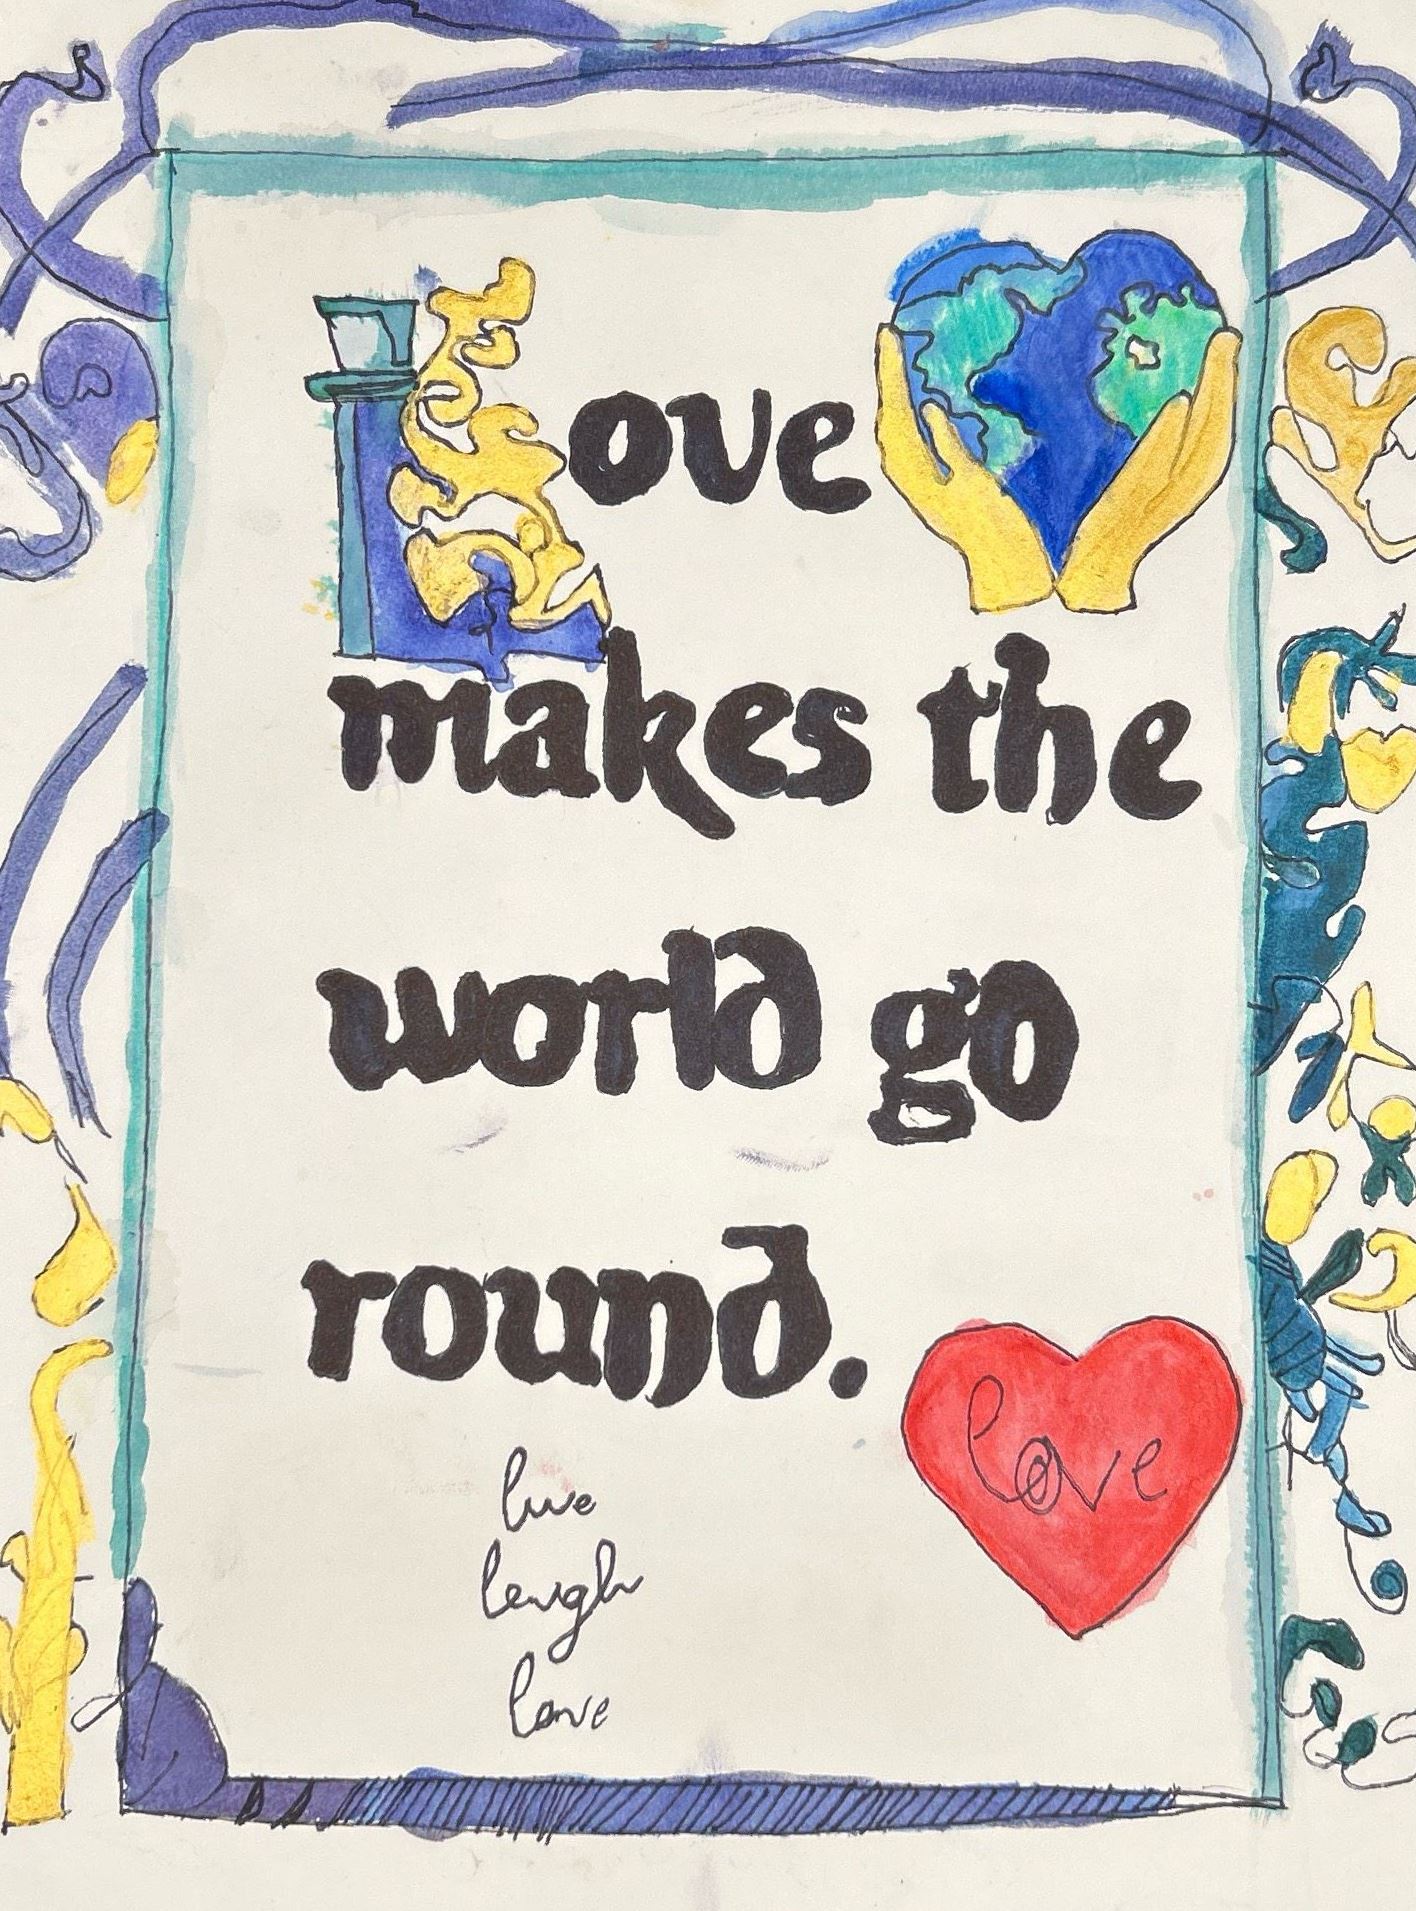 Love
makes the
world go
round.
love
live
laugh
love